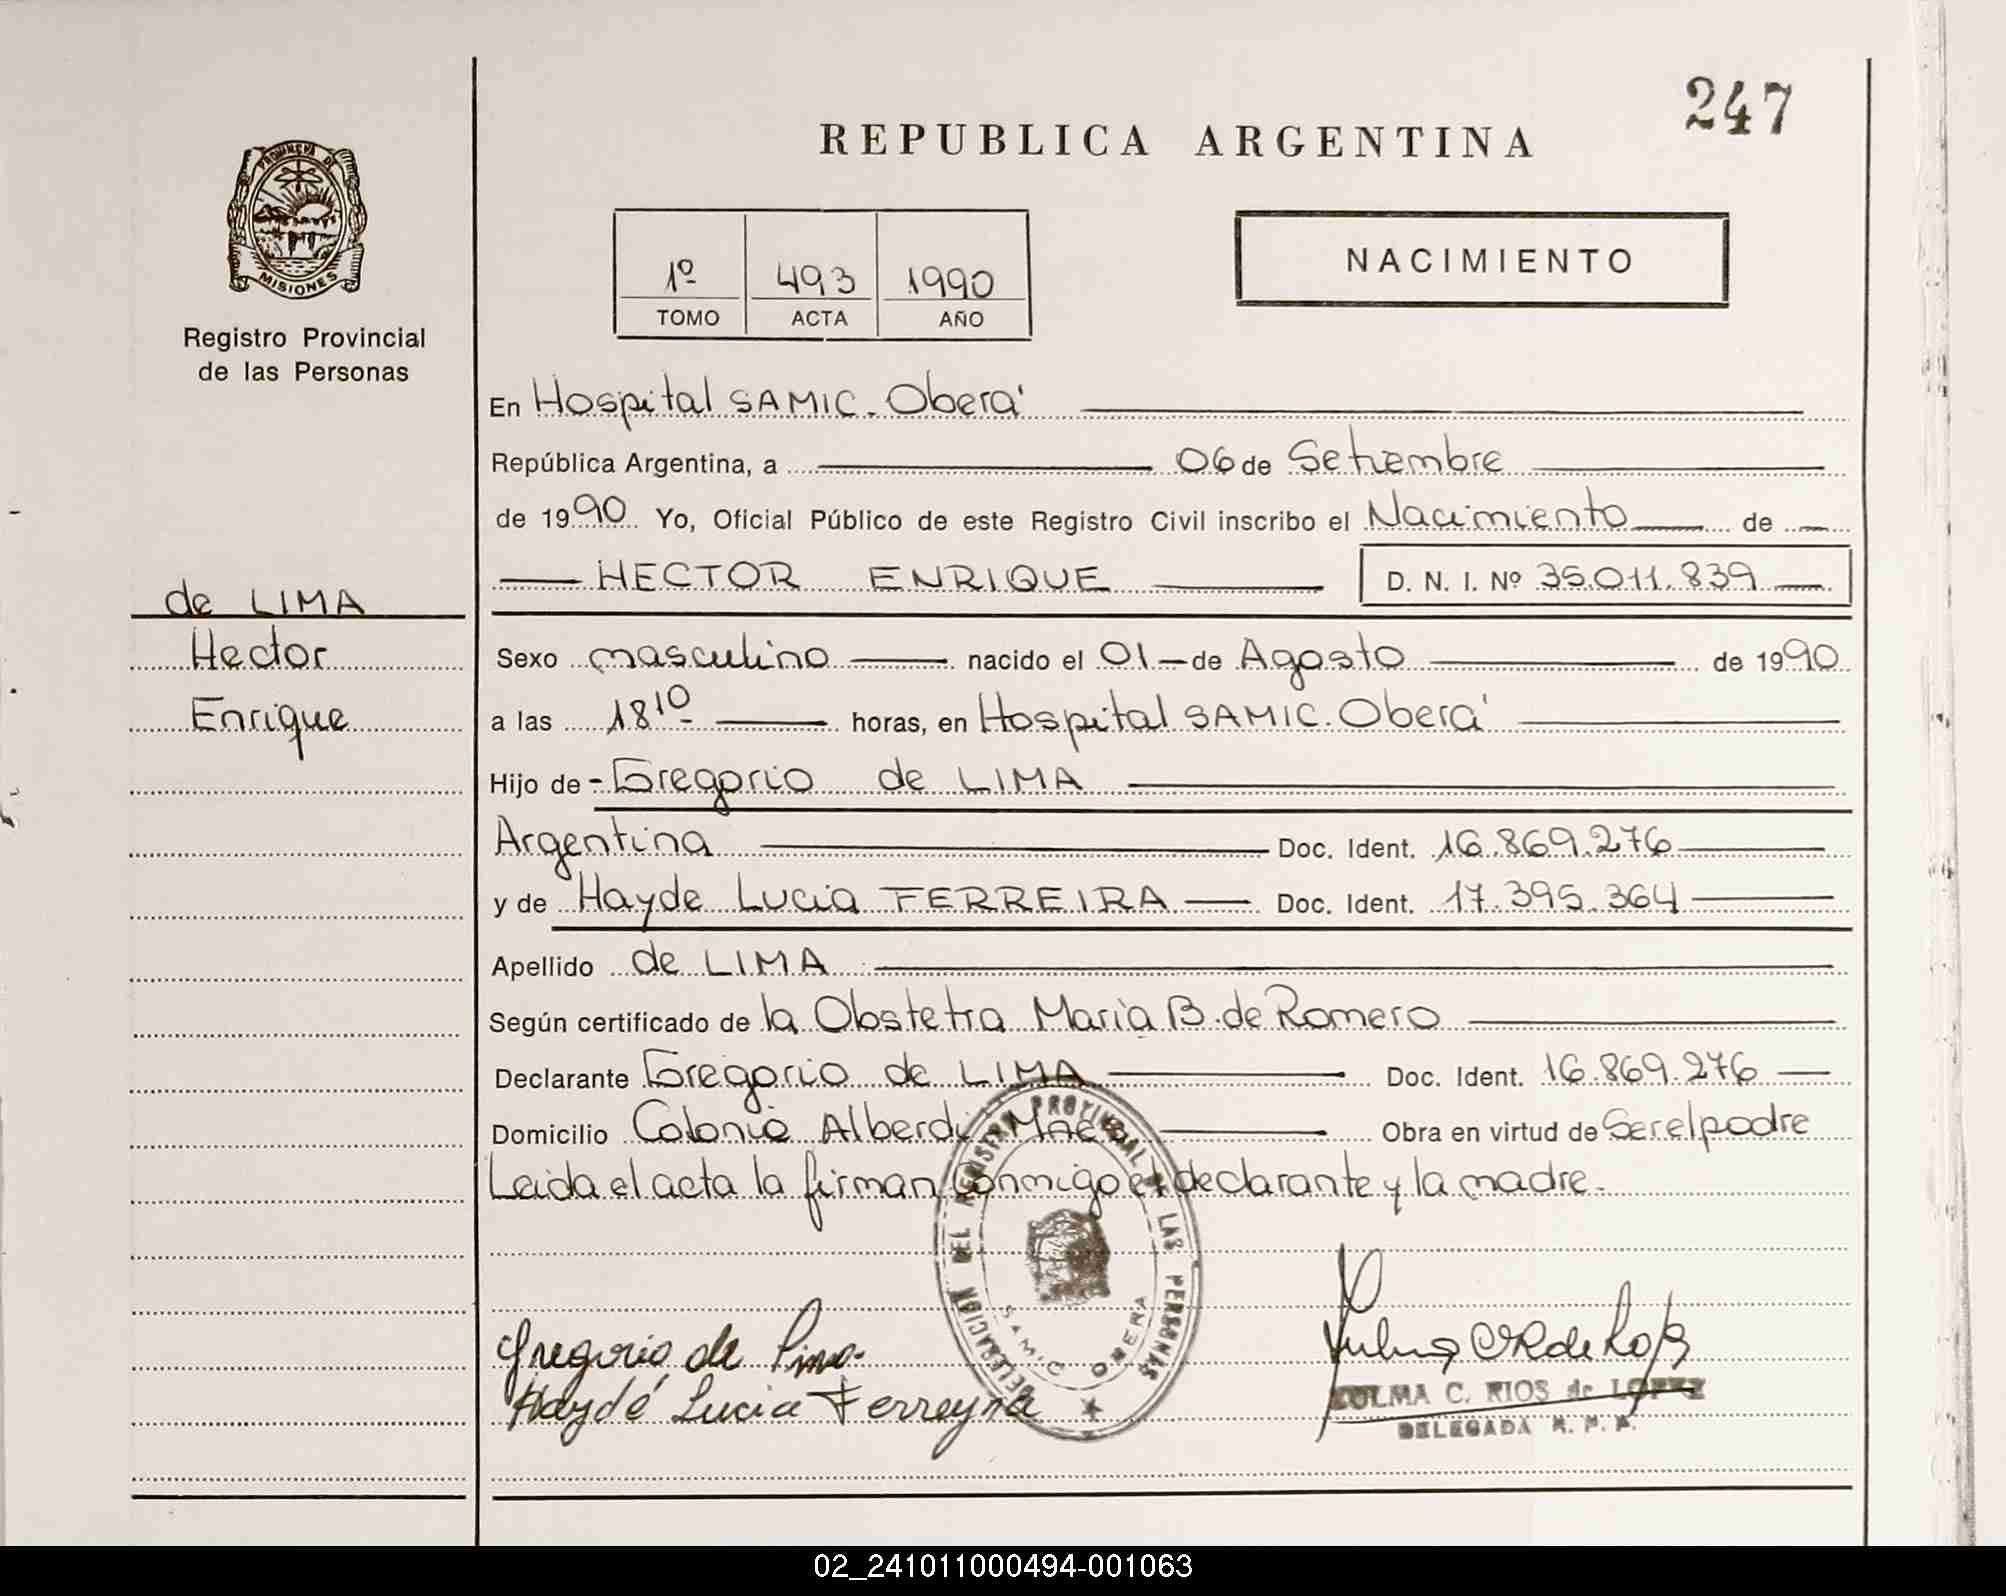 247
REPUBLICA ARGENTINA
PROVINCIA DE
MISIONES
Registro Provincial
de las Personas
1º 493 1990
TOMO ACTA AÑO
NACIMIENTO
En Hospital SAMIC. Oberá
República Argentina, a 06 de Setiembre
de 1990 Yo, Oficial Público de este Registro Civil inscribo el Nacimiento de
HECTOR ENRIQUE D. N. I. Nº 35.011.839
de LIMA
Hector
Enrique
Sexo masculino nacido el 01 de Agosto de 1990
a las 18 10 horas, en Hospital SAMIC. Oberá
Hijo de Gregorio de LIMA
Argentina Doc. Ident. 16.869.276
y de Hayde Lucia FERREIRA Doc. Ident. 17.395.364
Apellido de LIMA
Según certificado de la Obstetra Maria B. de Romero
Declarante Gregorio de LIMA Doc. Ident. 16.869.276
Domicilio Colonia Alberdi Obra en virtud de Ser el padre
Leida el acta la firman conmigo el declarante y la madre.
DELEGACION DEL REGISTRO PROVINCIAL DE LAS PERSONAS
SAMIC OBERA
Gregorio de Lima
Haydé Lucia Ferreyra
ZULMA C. RIOS de LOPEZ
DELEGADA R. P. P.
02_241011000494-001063